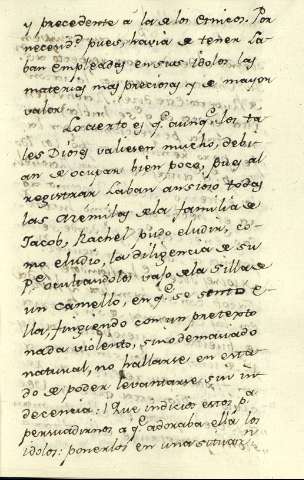 y precedente à la de los Etnicos. Por
necend.ᵈ pues, havia de tener La-
ban empleadas en sus idolos las
materias mas preciosas y de mayor
valor.
Lo cierto es q.ᵉ aunq.ᵉ los ta-
les Dióses valiesen mucho, debi-
an de ocupar bien poco, pues al
registrar Laban ansioso todas
las arémilas de la familia de
Jacob, Rachel pudo eludir, co-
mo eludio, la diligencia de su
P.ᵉ ocultandolos vajo de la silla de
un camello, en q.ᵉ se sentó e-
lla, fingiendo con un pretexto
nada violento, sino demasiado
natural, no hallarse en esta-
do de poder levantarse sin in-
decencia: ¡Que indicios estos p.ᵃ
persuadirnos a q.ᵉ adoraba ella los
idolos: ponerlos en una situaz.ⁿ